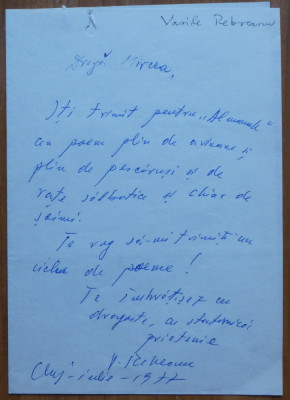 Vasile Rebreanu
Dragă Mircea,
Îți trimit pentru „Almanah"
un poem plin de avioane și
plin de pescăruși și de
rațe sălbatice și chiar de
șoimi.
Te rog să-mi trimiți un
ciclu de poeme!
Te îmbrățișez cu
dragoste, cu statornică
prietenie
V. Rebreanu
Cluj - iulie - 1977